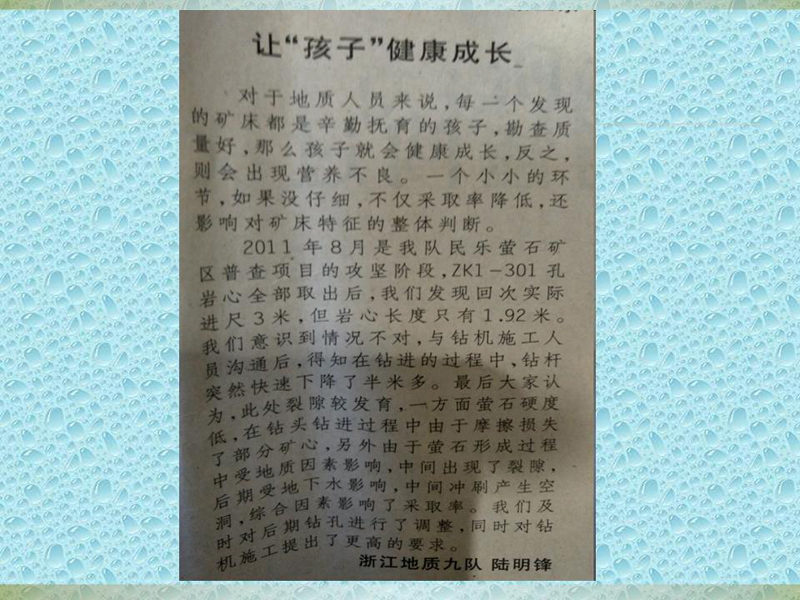 让“孩子”健康成长
对于地质人员来说，每一个发现
的矿床都是辛勤抚育的孩子，勘查质
量好，那么孩子就会健康成长，反之，
则会出现营养不良。一个小小的环
节，如果没仔细，不仅采取率降低，还
影响对矿床特征的整体判断。
2011年8月是我队民乐萤石矿
区普查项目的攻坚阶段，ZK1-301孔
岩心全部取出后，我们发现回次实际
进尺3米，但岩心长度只有1.92米。
我们意识到情况不对，与钻机施工人
员沟通后，得知在钻进的过程中，钻杆
突然快速下降了半米多。最后大家认
为，此处裂隙较发育，一方面萤石硬度
低，在钻头钻进过程中由于摩擦损失
了部分矿心，另外由于萤石形成过程
中受地质因素影响，中间出现了裂隙，
后期受地下水影响，中间冲刷产生空
洞，综合因素影响了采取率。我们及
时对后期钻孔进行了调整，同时对钻
机施工提出了更高的要求。
浙江地质九队 陆明锋